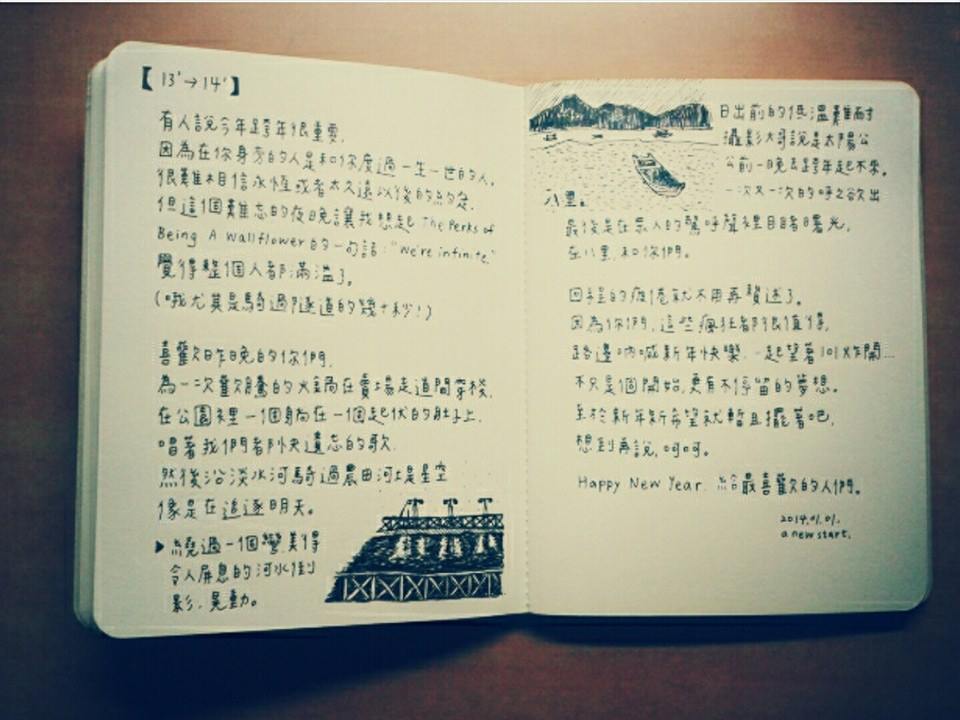 【13'→14'】
有人說今年跨年很重要,
因為在你身旁的人是和你度過一生一世的人。
很難相信永恆或者太久遠以後的約定,
但這個難忘的夜晚讓我想起 The Perks of
Being A Wallflower 的一句話:"We're infinite."
覺得整個人都滿溢了。
(哦尤其是騎過隧道的幾十秒!)
喜歡昨晚的你們,
為一次歡騰的火鍋在賣場走道間穿梭,
在公園裡一個躺在一個起伏的肚子上,
唱著我們都快遺忘的歌.
然後沿淡水河騎過農田河堤星空
像是在追逐明天。
▶繞過一個彎,美得
令人屏息的河水倒
影,晃動。
日出前的低溫難耐
攝影大哥說是太陽公
公前一晚去跨年起不來,
一次又一次的呼之欲出
八里。
最後是在眾人的驚呼聲裡目睹曙光,
在八里,和你們。
回程的疲倦就不用再贅述了。
因為你們,這些瘋狂都很值得,
路邊吶喊新年快樂,一起望著101炸開...
不只是個開始,更有不停留的夢想。
至於新年新希望就暫且擺著吧,
想到再說,呵呵。
Happy New Year. 給最喜歡的人們。
2014.01.01.
a new start.